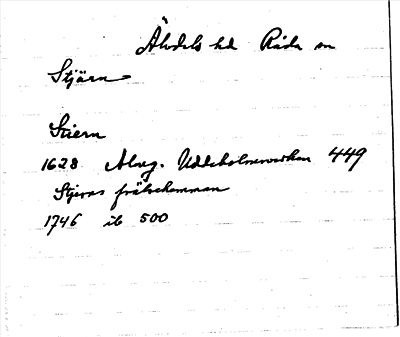 Älvdals hd Råda sn
Stjärn
Stiern
1628 Alvg. Uddeholmsverken 449
Stjerns frälsehemman
1746 ib 500